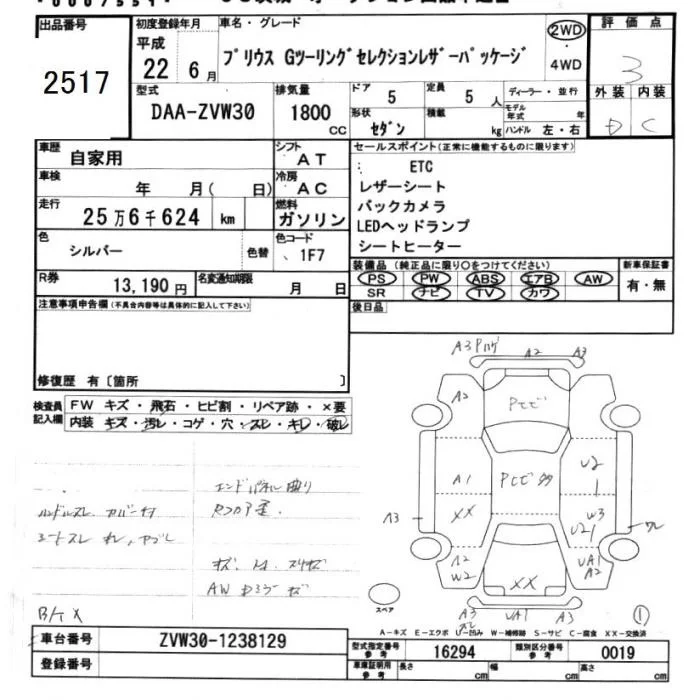 出品番号
2517
初度登録年月
平成
22 6月
車名・グレード
プリウス Gツーリングセレクションレザーパッケージ
2WD
・
4WD
評価点
3
外装 内装
D C
型式
DAA-ZVW30
排気量
1800
CC
ドア
5
定員
5 人
形状
セダン
積載
kg
ディーラー・並行
モデル年式 年
ハンドル 左・右
車歴
自家用
シフト
AT
車検
年 月( 日)
冷房
AC
走行
25万6千624 km
燃料
ガソリン
色
シルバー
色替
色コード
1F7
R券
13,190円
名変通知期限
月 日
セールスポイント(正常に機能するものに限ります)
ETC
レザーシート
バックカメラ
LEDヘッドランプ
シートヒーター
装備品(純正品に限り○をつけてください)
PS PW ABS エアB AW
SR ナビ TV カワ
新車保証書
有・無
後日品
注意事項申告欄(不具合内容等は具体的に記入して下さい)
修復歴 有〔箇所 〕
検査員記入欄
FW キズ・飛石・ヒビ割・リペア跡・×要
内装 キズ・汚レ・コゲ・穴・スレ・キレ・破レ
エンドパネル曲り
ハンドルスレ
AW
A3
A2
A3
A2
A1
XX
U2
W3
A3
A2
W2
XX
UA1
A2
A3
UA1
A3
スペア
①
A-キズ E-エクボ U-凹み W-補修跡 S-サビ C-腐食 XX-交換済
車台番号
ZVW30-1238129
登録番号
型式指定番号
参考
16294
類別区分番号
参考
0019
車庫証明用
参考
長さ cm
幅 cm
高さ cm